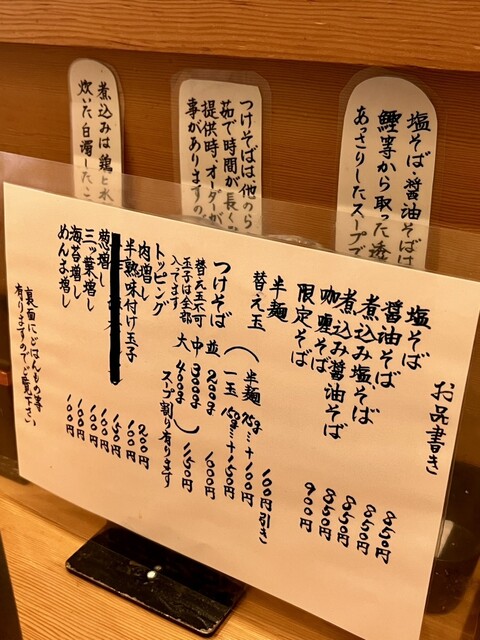 塩そば・醤油そばは
鰹等から取った透
あっさりしたスープで
つけそばは他のら
茹で時間が長く
提供時、オーダーが
事がありますの
煮込みは鶏と水
炊いた白濁したこ
お品書き
塩そば 850円
醤油そば 850円
煮込み塩そば 850円
煮込み醤油そば 850円
咖喱そば 900円
限定そば
半麺 100円引き
替え玉(半麺 75g…+100円
一玉 150g…+150円)
つけそば 並 200g 1000円
中 300g
大 400g 1150円
スープ割り有ります
替え玉不可
玉子は全部
入ってます
トッピング
肉増し 200円
半熟味付け玉子 100円
150円
葱増し 100円
三ッ葉増し 100円
海苔増し 100円
めんま増し 100円
裏面にごはんもの等
有りますのでご覧下さい